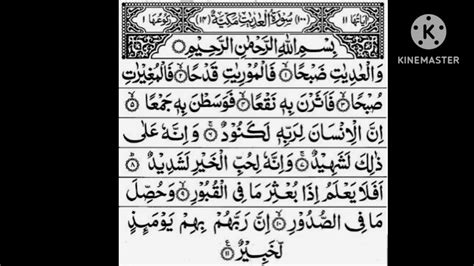 اٰیَاتُهَا ۱۱ (۱۰۰) سُوْرَةُ الْعٰدِيٰتِ مَكِّيَّةٌ (۱۴) رُكُوْعُهَا ۱
بِسْمِ اللهِ الرَّحْمٰنِ الرَّحِيْمِ
وَالْعٰدِيٰتِ ضَبْحًا ۱ فَالْمُوْرِيٰتِ قَدْحًا ۲ فَالْمُغِيْرٰتِ
صُبْحًا ۳ فَاَثَرْنَ بِهٖ نَقْعًا ۴ فَوَسَطْنَ بِهٖ جَمْعًا ۵
اِنَّ الْاِنْسَانَ لِرَبِّهٖ لَكَنُوْدٌ ۶ وَاِنَّهٗ عَلٰى
ذٰلِكَ لَشَهِيْدٌ ۷ وَاِنَّهٗ لِحُبِّ الْخَيْرِ لَشَدِيْدٌ ۸
اَفَلَا يَعْلَمُ اِذَا بُعْثِرَ مَا فِى الْقُبُوْرِ ۹ وَحُصِّلَ
مَا فِى الصُّدُوْرِ ۱۰ اِنَّ رَبَّهُمْ بِهِمْ يَوْمَئِذٍ
لَّخَبِيْرٌ ۱۱
KINEMASTER